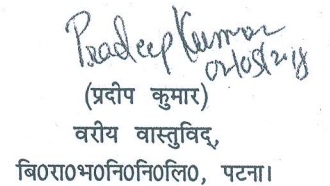 Pradeep Kumar
02/05/2018
(प्रदीप कुमार)
वरीय वास्तुविद्,
बि0रा0भ0नि0नि0लि0, पटना।